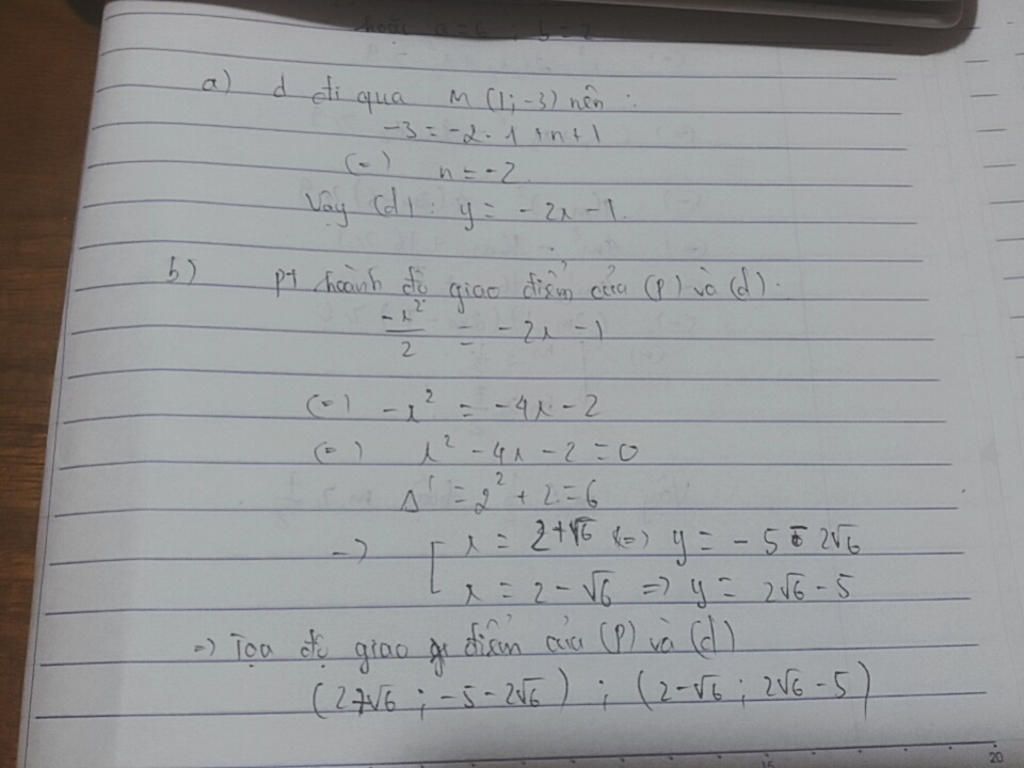 hoặc a = 6 ; b = 2
a) d đi qua M (1; -3) nên :
-3 = -2 . 1 + n + 1
(=) n = -2.
Vậy (d): y = -2x - 1.
b) pt hoành độ giao điểm của (P) và (d):
-x²/2 = -2x - 1
(=) -x² = -4x - 2
(=) x² - 4x - 2 = 0
Δ' = 2² + 2 = 6
-> [ x = 2 + √6 (=) y = -5 - 2√6
x = 2 - √6 => y = 2√6 - 5
=> Tọa độ giao điểm của (P) và (d)
(2+√6 ; -5 - 2√6) ; (2 - √6 ; 2√6 - 5)
15 20